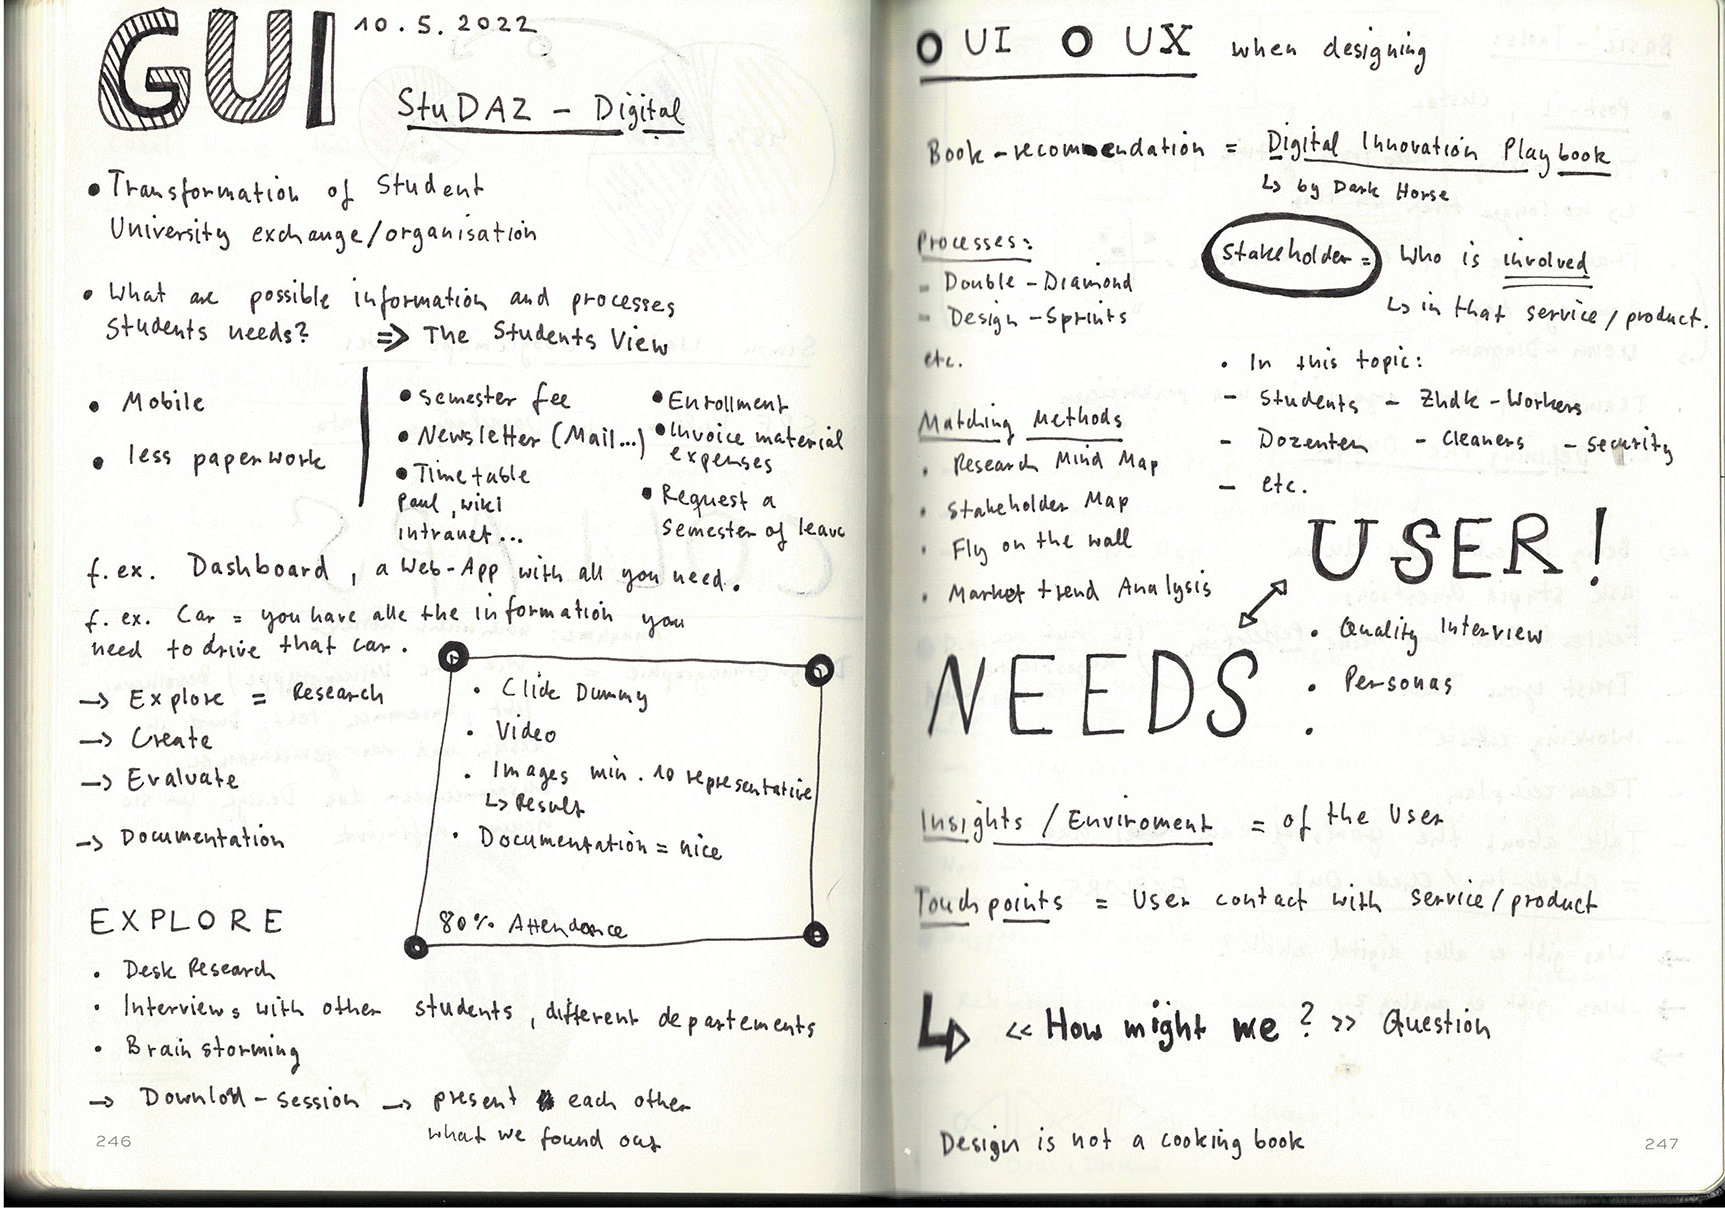 GUI 10.5.2022
StuDAZ - Digital
• Transformation of Student
University exchange/organisation
• What are possible information and processes
students needs? => The Students View
• Mobile
• less paperwork
• Semester fee
• Newsletter (Mail...)
• Timetable
Paul, wiki
intranet...
• Enrollment
• Invoice material
expenses
• Request a
Semester of leave
f. ex. Dashboard, a Web-App with all you need.
f. ex. Car = you have alle the information you
need to drive that car.
-> Explore = Research
-> Create
-> Evaluate
-> Documentation
• Click Dummy
• Video
• Images min. 10 representative
↳ Result
• Documentation = nice
80% Attendance
EXPLORE
• Desk Research
• Interviews with other students, different departements
• Brainstorming
-> Download-session -> present each other
what we found out
246
O UI O UX when designing
Book-recommendation = Digital Innovation Playbook
↳ by Dark Horse
Processes:
- Double-Diamond
- Design-Sprints
etc.
Stakeholder = Who is involved
↳ in that service/product.
• In this topic:
- Students - Zhdk-Workers
- Dozenten - Cleaners - Security
- etc.
Matching Methods
• Research Mind Map
• Stakeholder Map
• Fly on the wall
• Market trend Analysis
USER!
NEEDS
• Quality Interview
• Personas
•
Insights / Enviroment = of the User
Touchpoints = User contact with service/product
↳ << How might we? >> Question
Design is not a cooking book
247